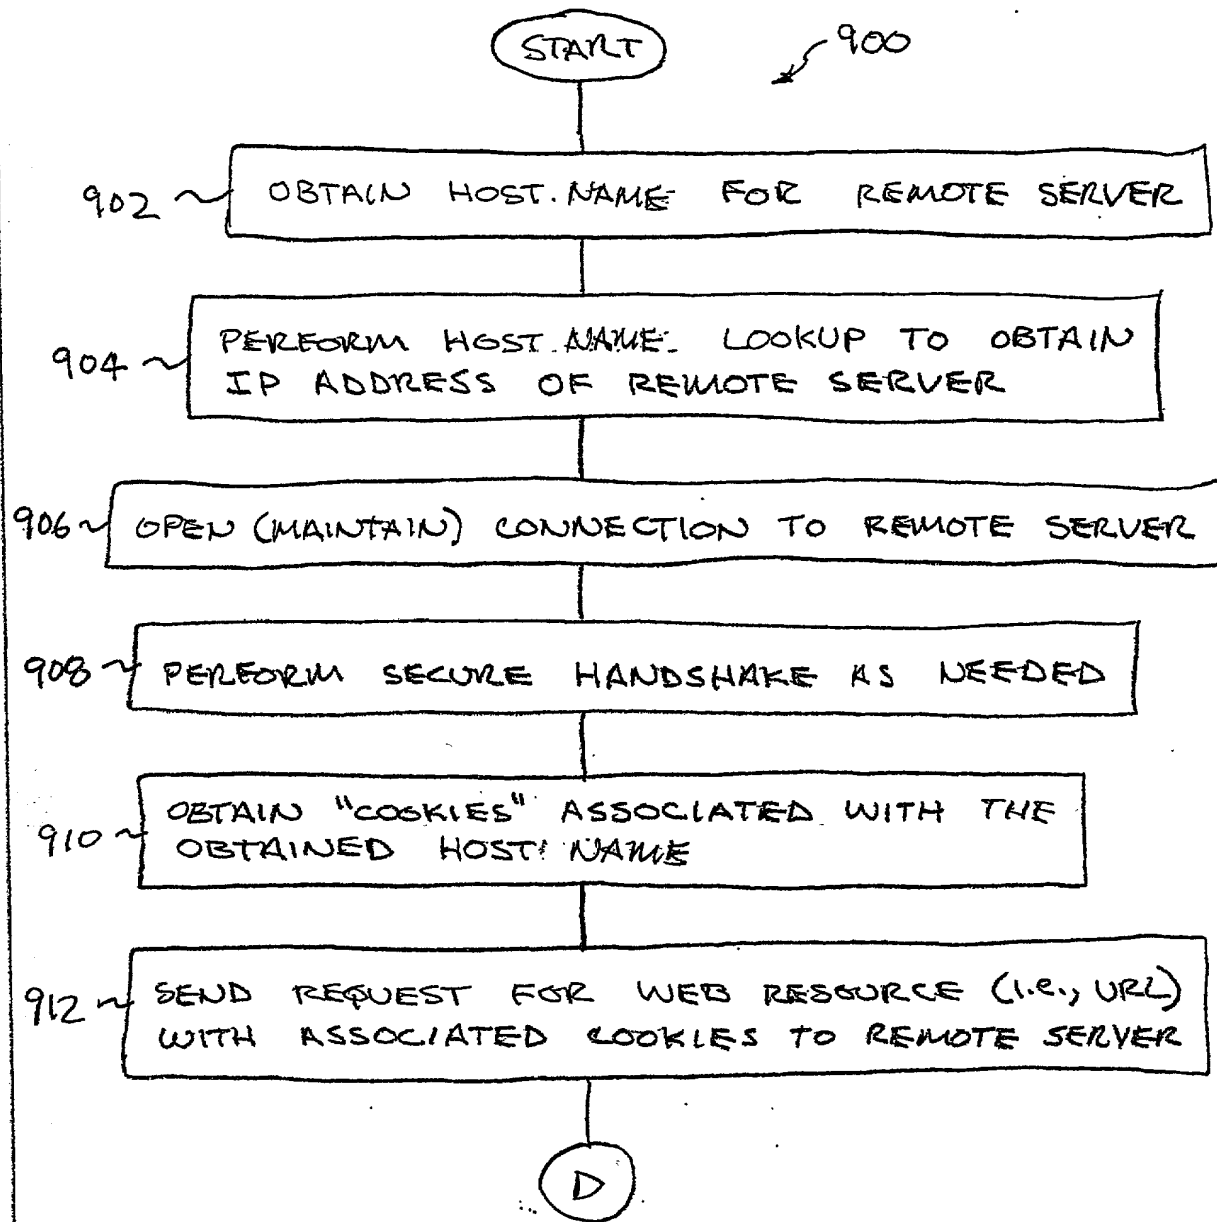 START
900
902
OBTAIN HOST NAME FOR REMOTE SERVER
904
PERFORM HOST NAME LOOKUP TO OBTAIN
IP ADDRESS OF REMOTE SERVER
906
OPEN (MAINTAIN) CONNECTION TO REMOTE SERVER
908
PERFORM SECURE HANDSHAKE AS NEEDED
910
OBTAIN "COOKIES" ASSOCIATED WITH THE
OBTAINED HOST NAME
912
SEND REQUEST FOR WEB RESOURCE (i.e., URL)
WITH ASSOCIATED COOKIES TO REMOTE SERVER
D